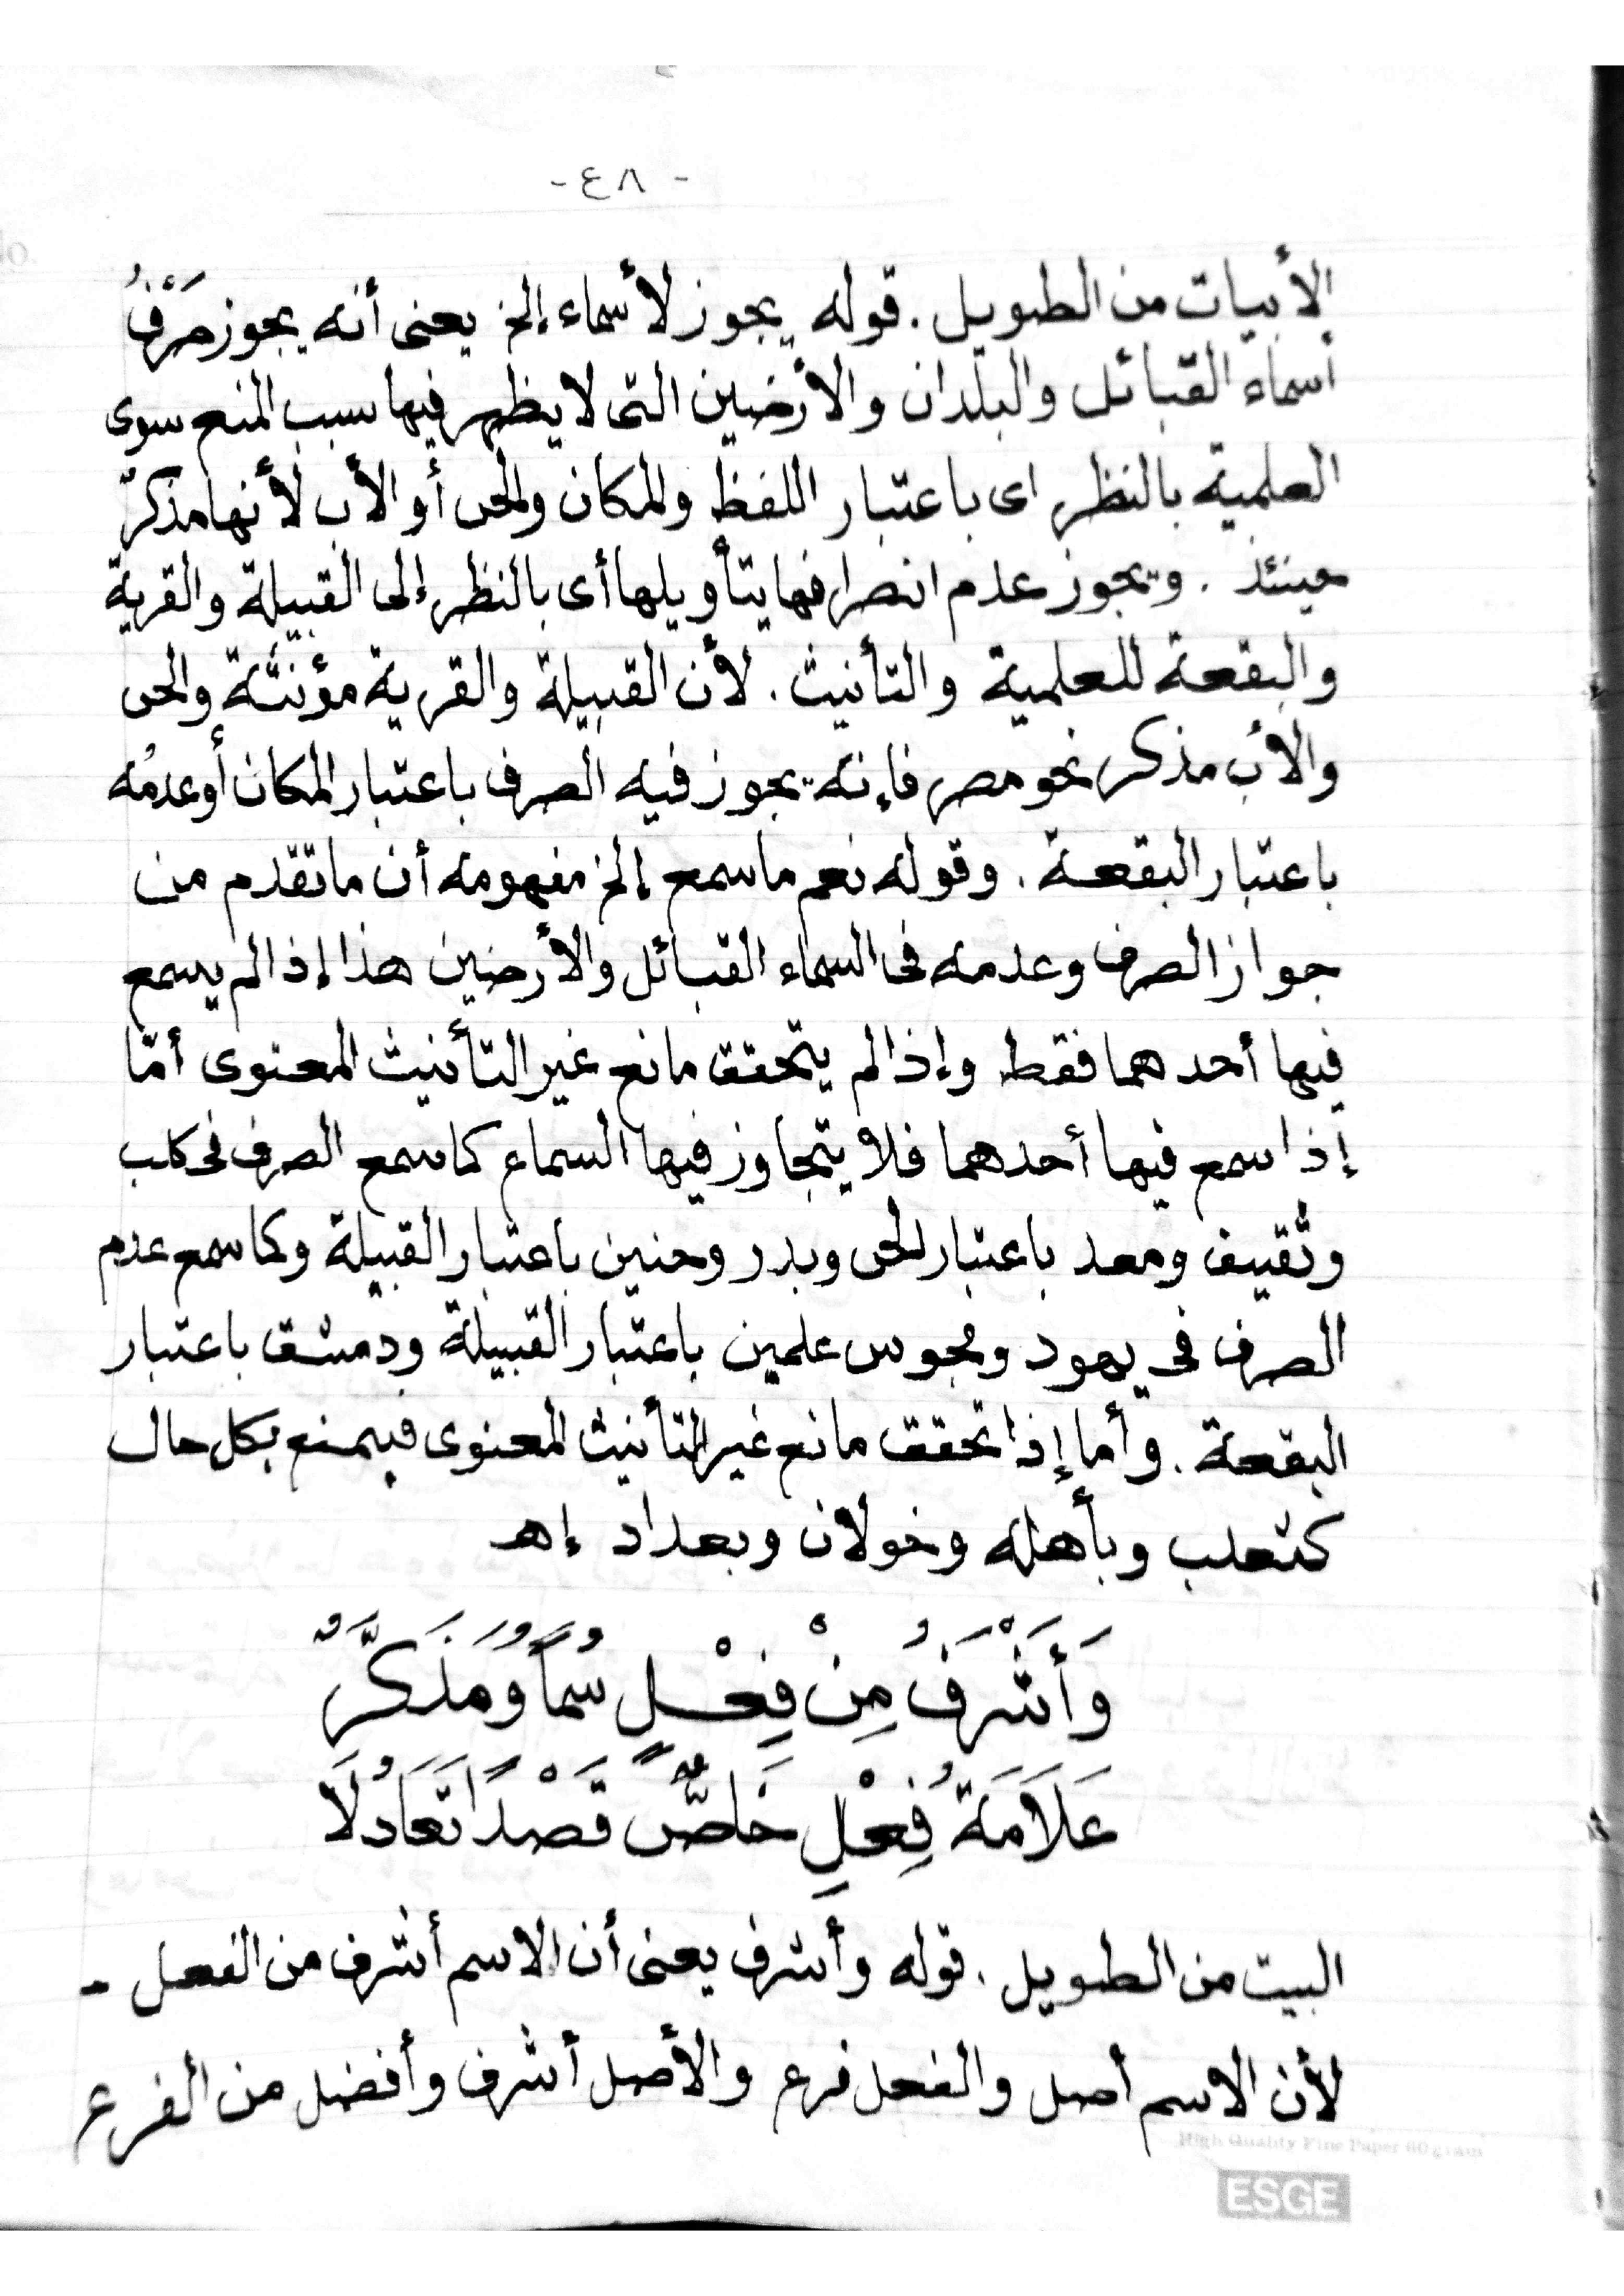 - ٤٨ -
الأبيات من الطويل . قوله يجوز لأسماء إلخ يعنى أنه يجوز صَرْفُ
أسماء القبائل والبلدان والأرضين التى لا يظهر فيها سبب المنع سوى
العلمية بالنظر اى باعتبار اللفظ والمكان والحى أو الأب لأنها مذكرٌ
حينئذ . ويجوز عدم انصرافها بتأويلها أى بالنظر إلى القبيلة والقرية
والبقعة للعلمية والتأنيث . لأن القبيلة والقرية مؤنثة والحى
والأب مذكر نحو مصر فإنه يجوز فيه الصرف باعتبار المكان أو عدمُه
باعتبار البقعة . وقوله نعم ما سمع إلخ مفهومه أن ما تقدم من
جواز الصرف وعدمه فى اسماء القبائل والأرضين هذا إذا لم يسمع
فيها أحدهما فقط وإذا لم يتحقق مانع غير التأنيث المعنوى أمّا
إذا سمع فيها أحدهما فلا يتجاوز فيها السماع كما سمع الصرف فى كلب
وثقيف ومعد باعتبار الحى وبدر وحنين باعتبار القبيلة وكما سمع عدم
الصرف فى يهود ومجوس علمين باعتبار القبيلة ودمشق باعتبار
البقعة . وأما إذا تحقق مانع غير التأنيث المعنوى فيمنع بكل حال
كتغلب وبأهله وخولان وبغداد إهـ
وَأَشْرَفُ مِنْ فِعْلٍ سُمًا وَمُذَكَّرٌ
عَلَامَةُ فِعْلٍ خَاصٌّ قَصْدًا تَعَادُلَا
البيت من الطويل . قوله وأشرف يعنى أن الاسم أشرف من الفعل -
لأن الاسم أصل والفعل فرع والأصل أشرف وأفضل من الفرع
High Quality Fine Paper 60 gram
ESGE